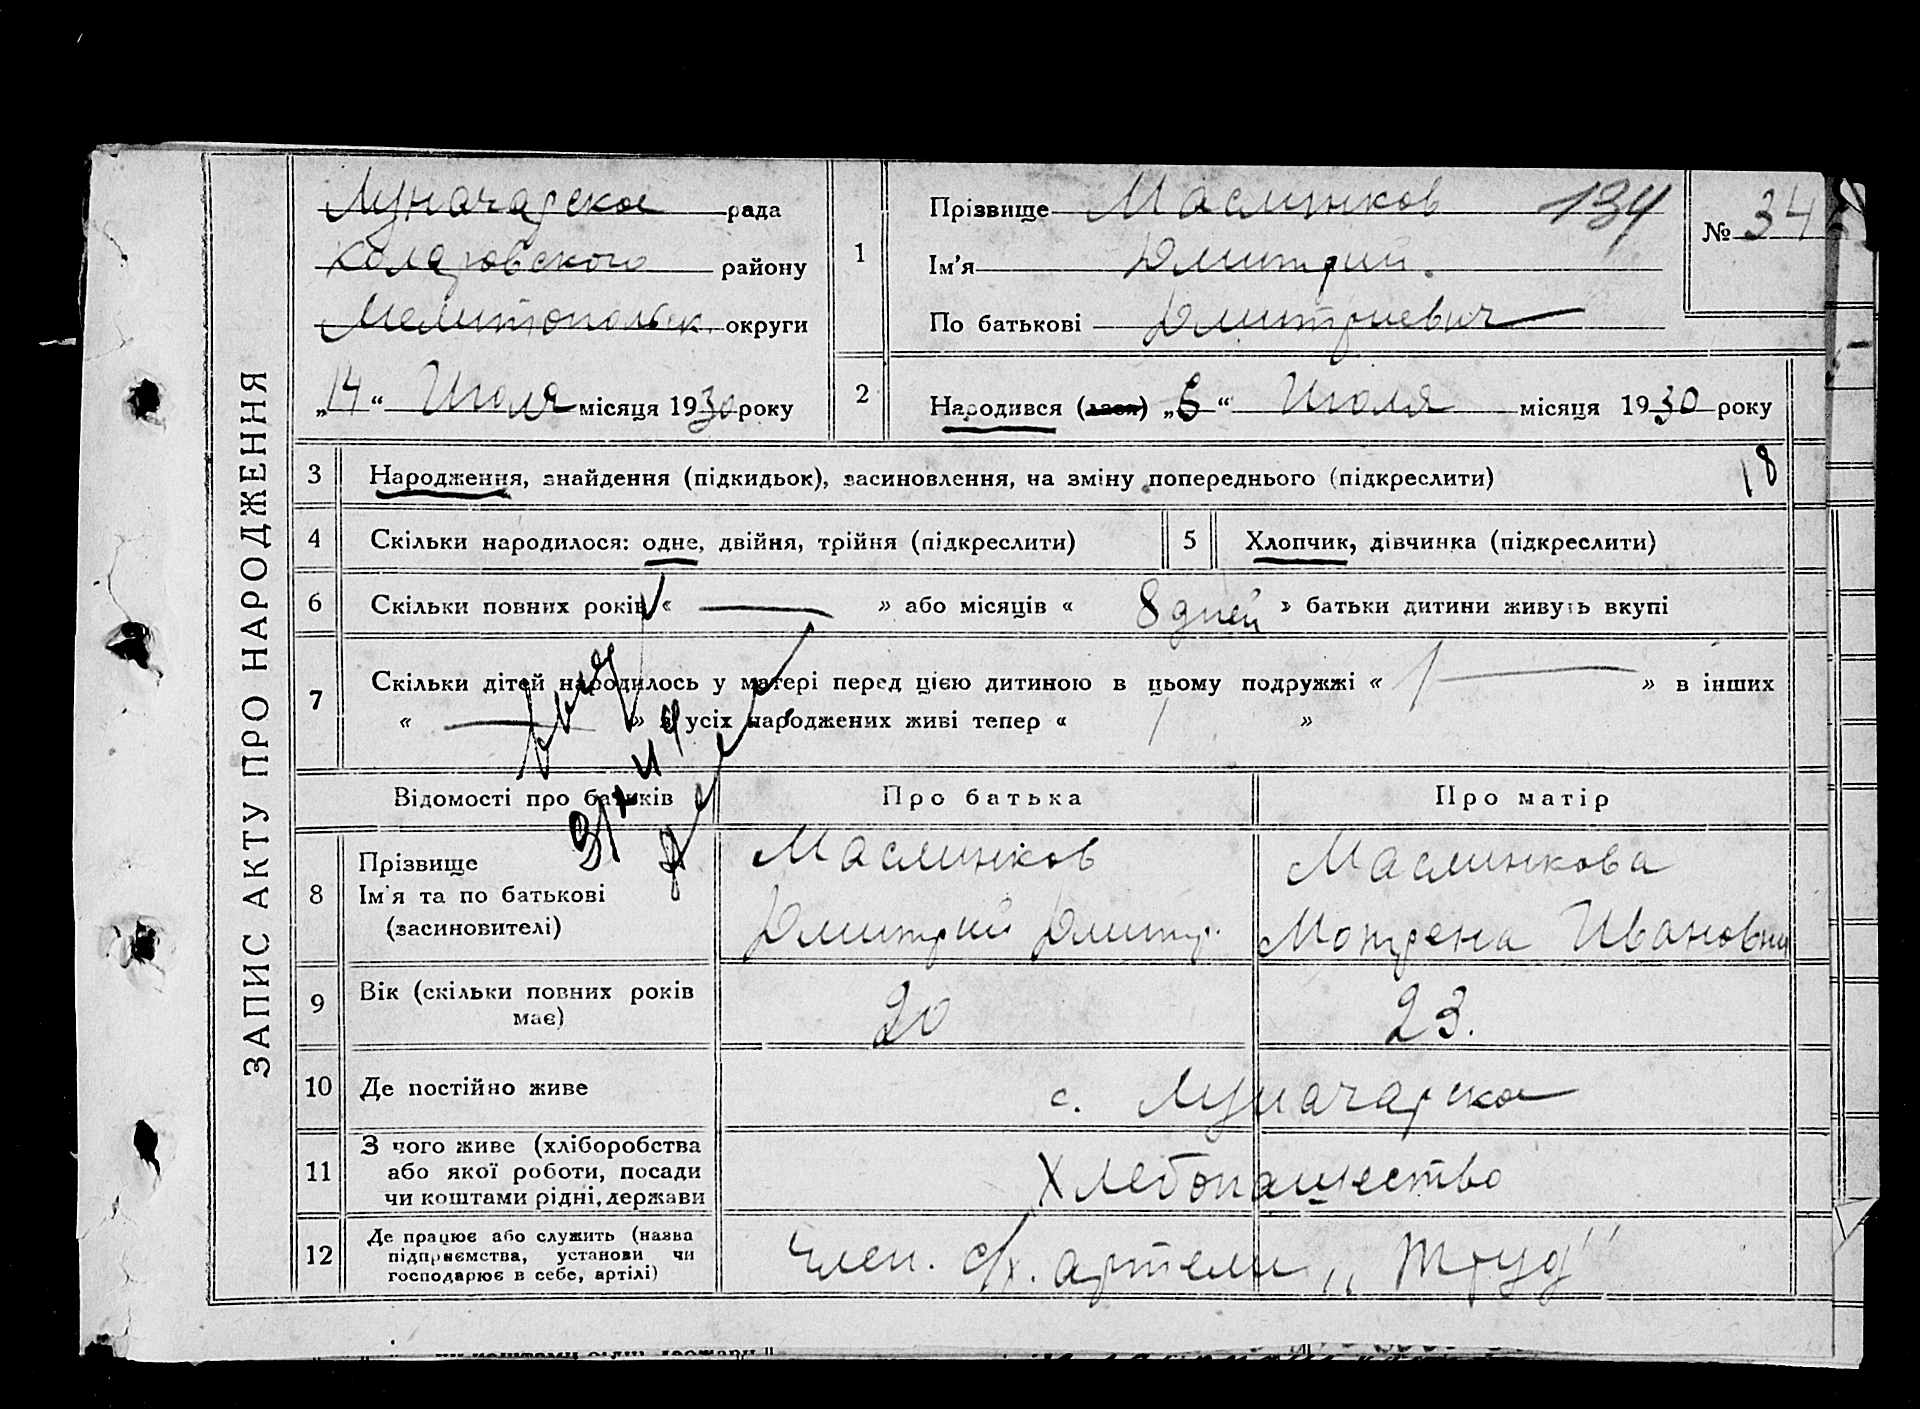 ЗАПИС АКТУ ПРО НАРОДЖЕННЯ
Луначарская рада
Коларовского району
Мелитопольск. округи
„14“ Июля місяця 1930 року
1
Прізвище Маслинков 134
Ім'я Дмитрий.
По батькові Дмитриевич
№ 34
2
Народився (лася) „6“ Июля місяця 1930 року
3 Народження, знайдення (підкидьок), засиновлення, на зміну попереднього (підкреслити) 18
4 Скільки народилося: одне, двійня, трійня (підкреслити)
5 Хлопчик, дівчинка (підкреслити)
6 Скільки повних років « — » або місяців « 8 дней » батьки дитини живуть вкупі
7 Скільки дітей народилось у матері перед цією дитиною в цьому подружжі « 1 — » в інших
« — » з усіх народжених живі тепер « 1 »
Відомості про батьків Про батька Про матір
8 Прізвище
Ім'я та по батькові
(засиновителі)
Маслинков
Дмитрий Дмитр.
Маслинкова
Мотрена Ивановна
9 Вік (скільки повних років
має)
20 23.
10 Де постійно живе с. Луначарское
11 З чого живе (хліборобства
або якої роботи, посади
чи коштами рідні, держави
Хлебопашество
12 Де працює або служить (назва
підприємства, установи чи
господарює в себе, артілі)
Член. с/х. артели „Труд"